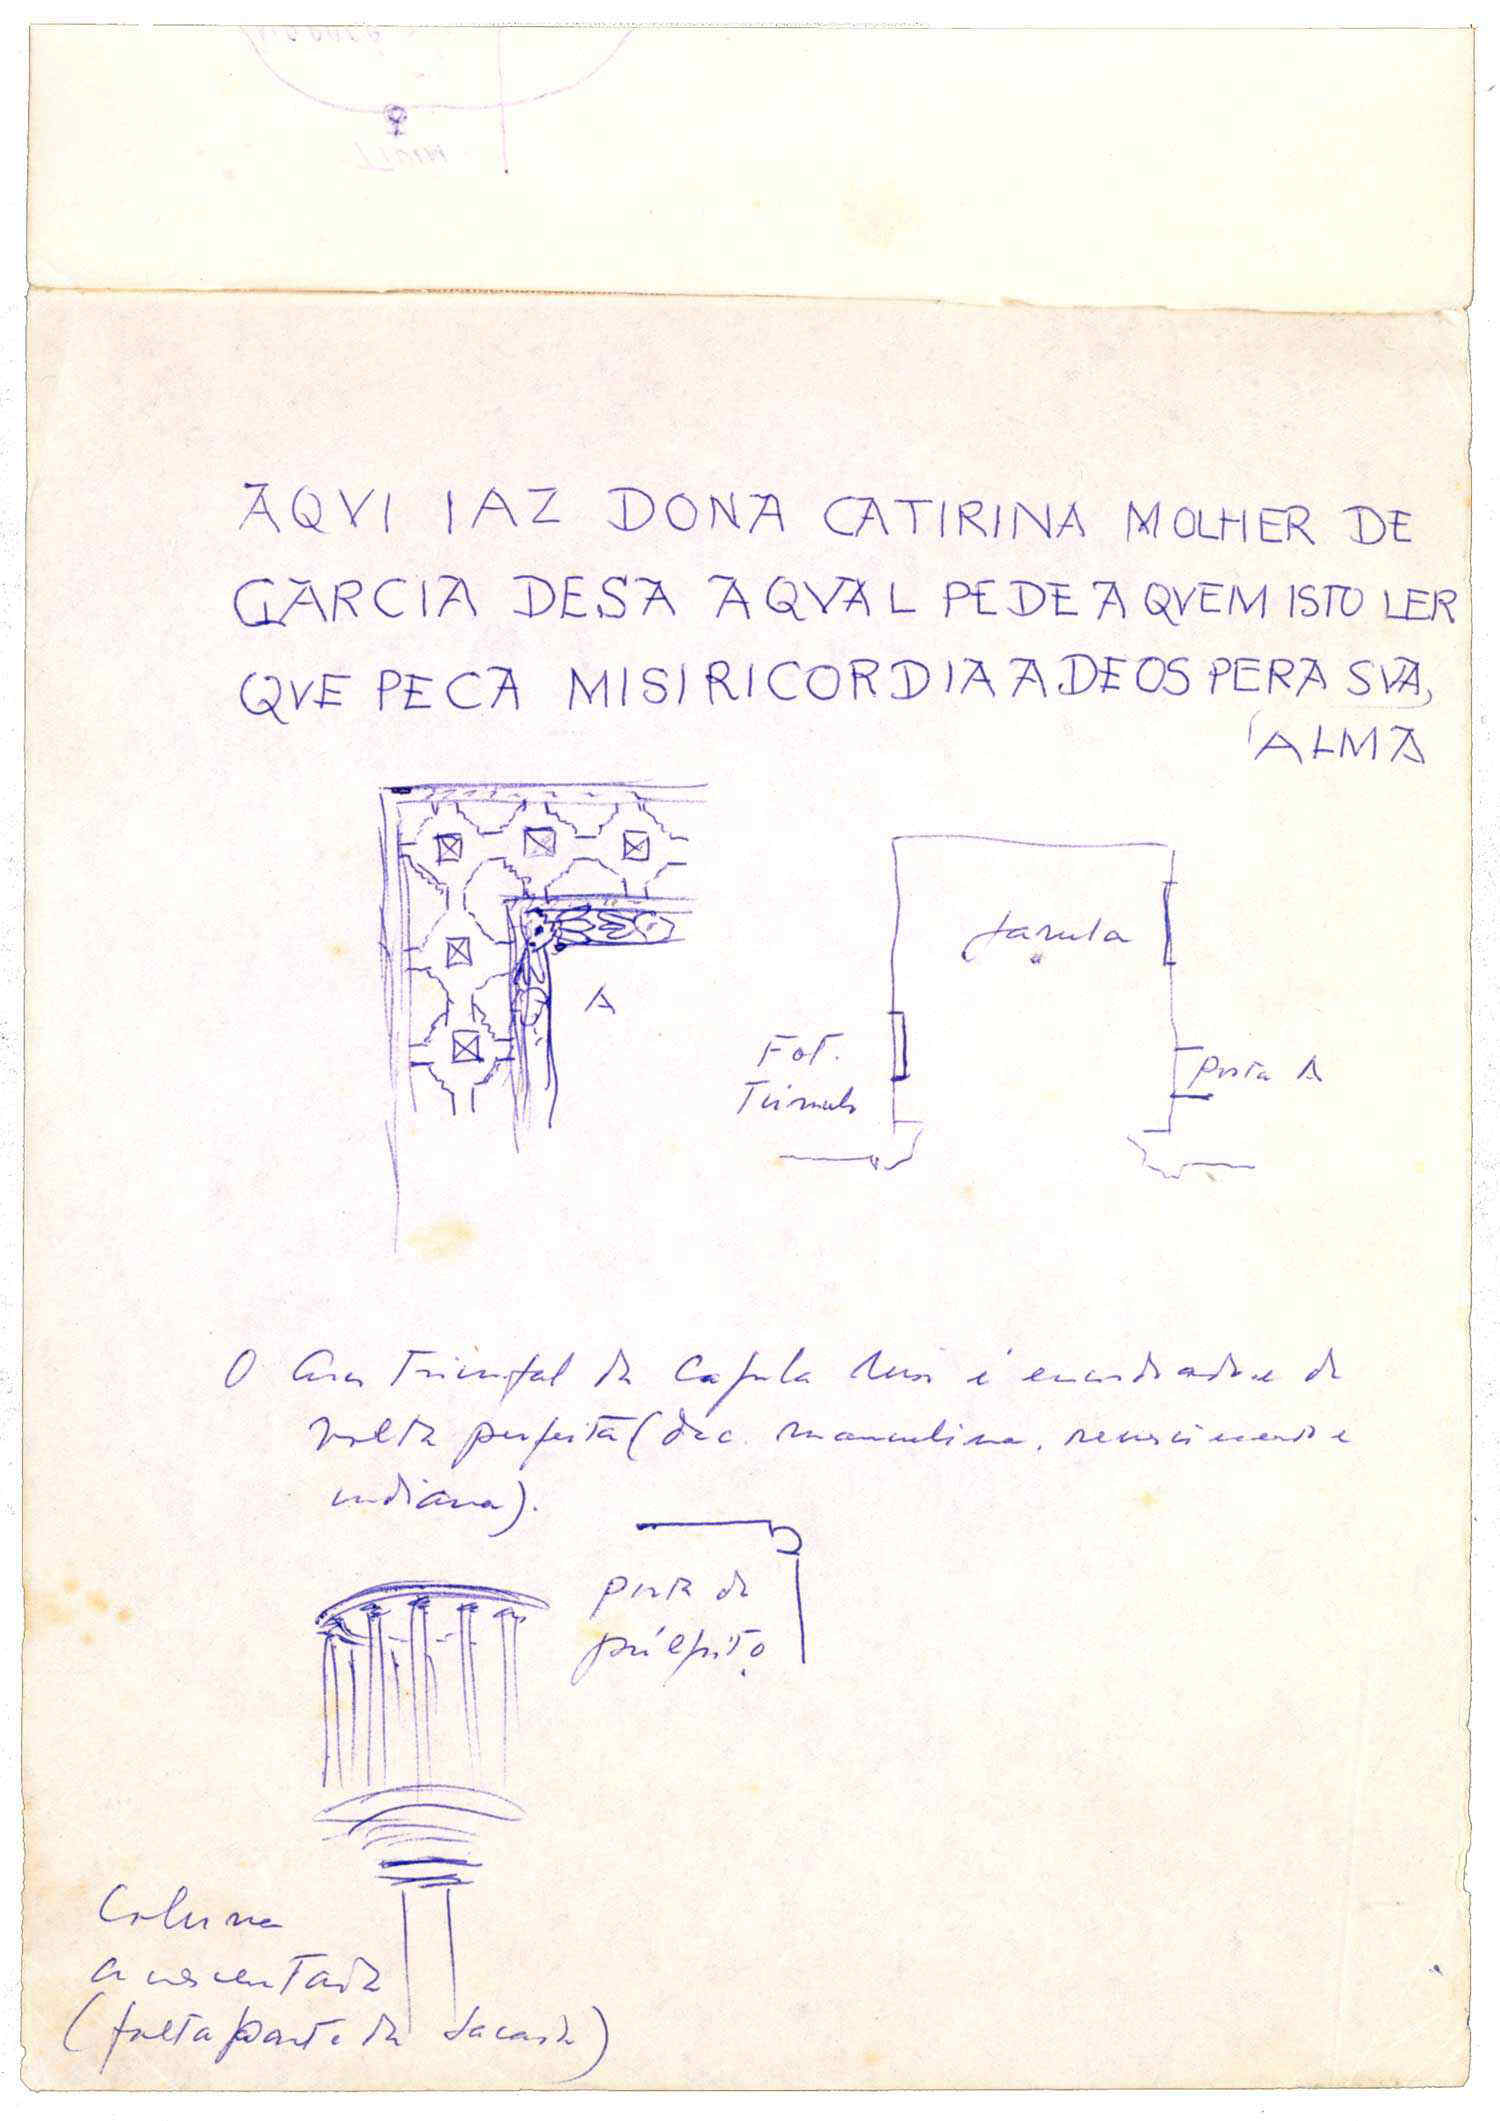 AQVI IAZ DONA CATIRINA MOLHER DE
GARCIA DESA AQVAL PEDE A QVEM ISTO LER
QVE PECA MISIRICORDIA A DEOS PERA SVA
ALMA
A
janela
Fot.
Túmulo
porta A
O Arco Triunfal da Capela é de
volta perfeita (dec. manuelina, renascimento e
indiana).
porta do
púlpito
Coluna
acrescentada
(falta parte da sacada)